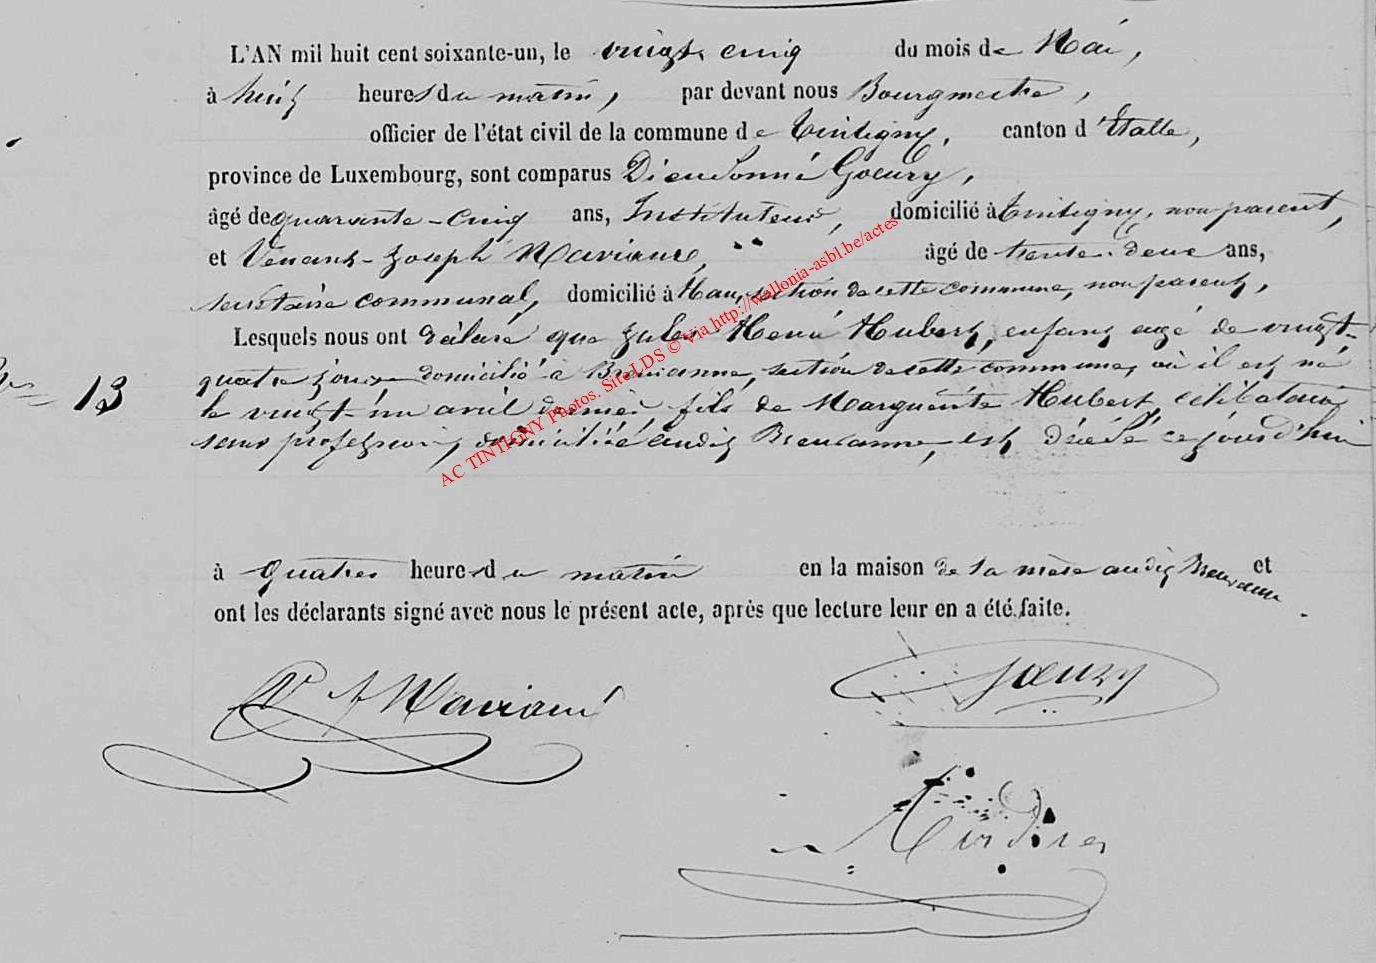 L'AN mil huit cent soixante-un, le vingt cinq du mois de Mai,
à huit heures du matin, par devant nous Bourgmestre,
officier de l'état civil de la commune de Tintigny, canton d'Etalle,
province de Luxembourg, sont comparus Dieudonné Goeury,
âgé de quarante-cinq ans, Instituteur, domicilié à Tintigny, non parent,
et Venant-Joseph Maviane, âgé de trente-deux ans,
secrétaire communal, domicilié à Han, section de cette commune, non parent,
Lesquels nous ont déclaré que Jules Henri Hubert, enfant agé de vingt-
13
quatre jours domicilié à Breuvanne, section de cette commune, où il est né
le vingt-un avril dernier fils de Marguerite Hubert, célibataire
sans profession, domiciliée audit Breuvanne, est décédé ce jourd'hui
à quatres heures du matin en la maison de la mère audit Breuvanne et
ont les déclarants signé avec nous le présent acte, après que lecture leur en a été faite.
Goeury
AC TINTIGNY Photos. SiteLDS © Via http://wallonia-asbl.be/actes